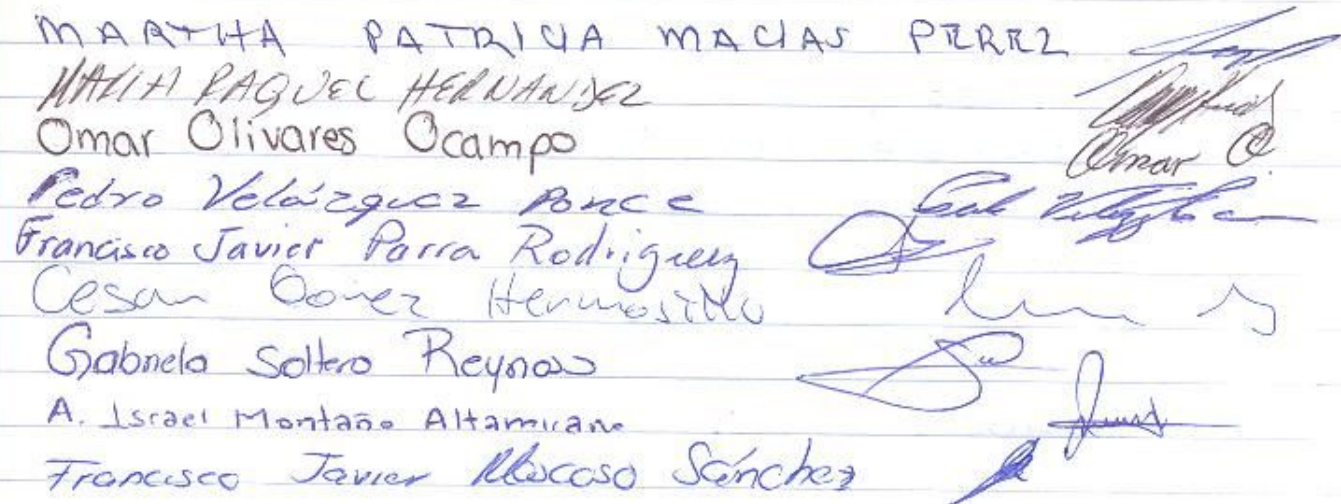 MARTHA PATRICIA MACIAS PEREZ
MARIA RAQUEL HERNANDEZ
Omar Olivares Ocampo Omar O.
Pedro Velázquez Ponce
Francisco Javier Parra Rodriguez
Cesar Gomez Hermosillo
Gabriela Soltero Reynoso
A. Israel Montaño Altamirano
Francisco Javier Moscoso Sánchez